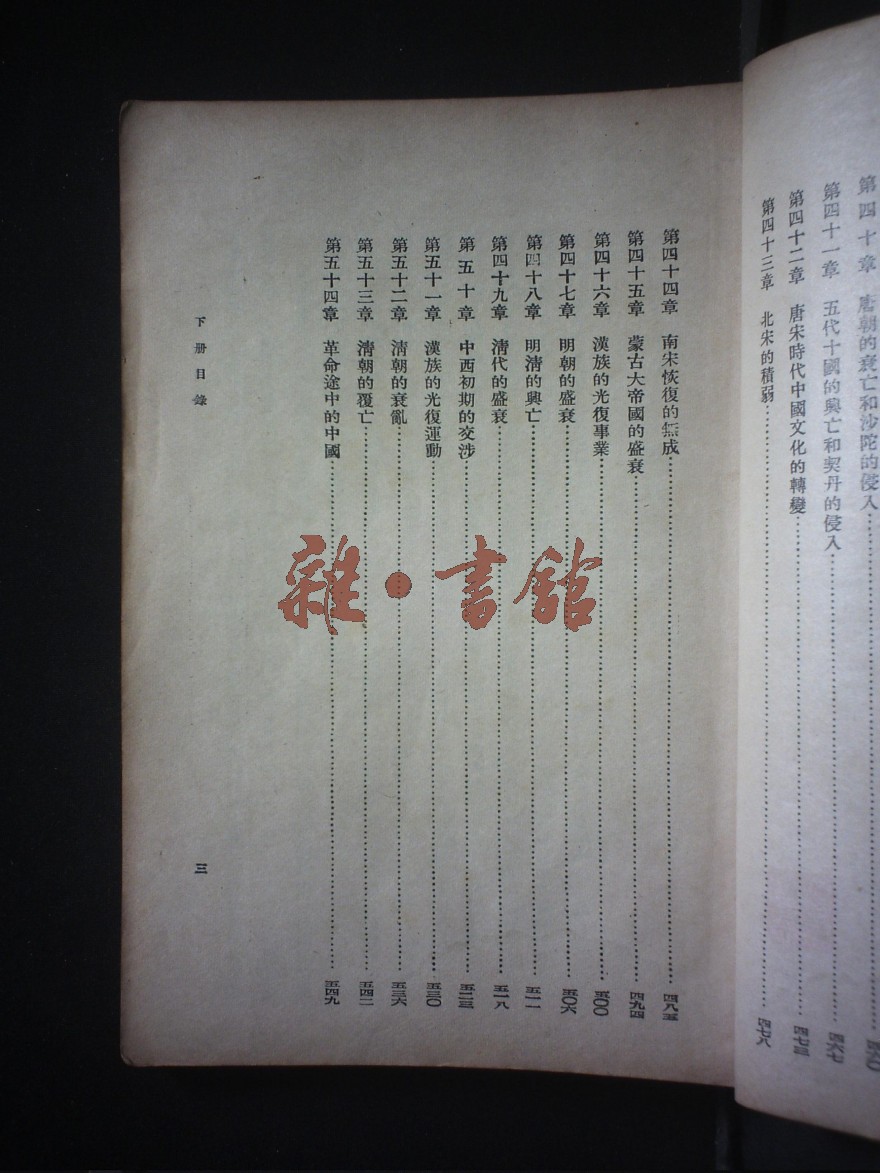 第四十章　唐朝的衰亡和沙陀的侵入……四六〇
第四十一章　五代十國的興亡和契丹的侵入……四六七
第四十二章　唐宋時代中國文化的轉變……四七三
第四十三章　北宋的積弱……四七八
第四十四章　南宋恢復的無成……四八五
第四十五章　蒙古大帝國的盛衰……四九四
第四十六章　漢族的光復事業……五〇〇
第四十七章　明朝的盛衰……五〇六
第四十八章　明清的興亡……五一一
第四十九章　清代的盛衰……五一八
第五十章　中西初期的交涉……五二三
第五十一章　漢族的光復運動……五三〇
第五十二章　清朝的衰亂……五三六
第五十三章　清朝的覆亡……五四二
第五十四章　革命途中的中國……五四九
下册目錄
三
雜·書館